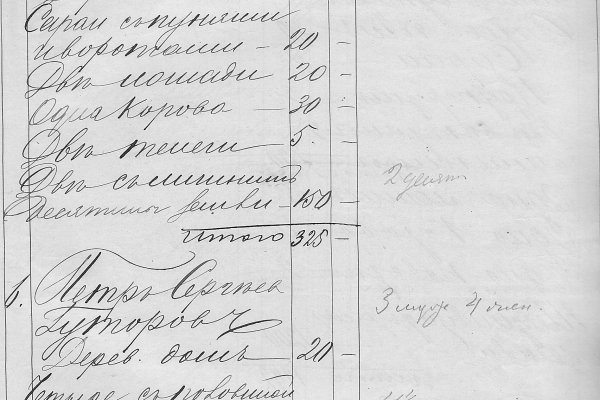 Сараи съ пунями
и воротами — 20 —
Двѣ лошади 20 —
Одна корова — 30 —
Двѣ телеги 5. —
Двѣ съ
десятины земли — 150 — 2 десят
Итого 325 —
6. Петръ Сергѣев
3 муж 4 жен.
Гуторовъ
Дерев. домъ — 20 —